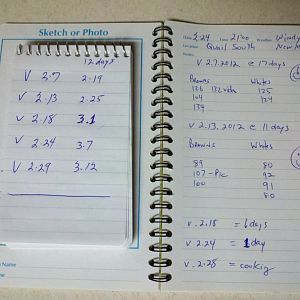 Sketch or Photo
12 days
V 2.7 2.19
V 2.13 2.25
V 2.18 3.1
V 2.24 3.7
V 2.29 3.12
Name
Date 2.24 Time 2100 Weather Windy
Location Quail South New M
Notes
V 2.7.2012 @ 17 days
Browns Whites
126 132 125
104 124
139
V 2.13.2012 @ 11 days
Browns Whites
89 80
107-Pic 92
100 91
80
V. 2.18 = 6 days
V. 2.24 = 1 day
V. 2.28 = cooking